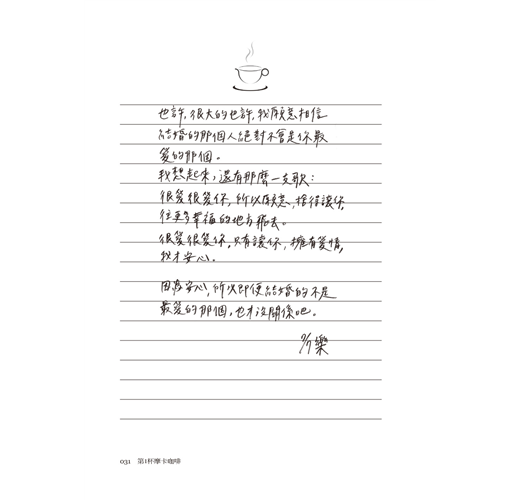 也許,很大的也許,我願意相信
結婚的那個人絕對不會是你最
愛的那個。
我想起來,還有那麼一支歌:
很愛很愛你,所以願意,捨得讓你,
往更多幸福的地方飛去。
很愛很愛你,只有讓你,擁有愛情,
我才安心。
因為安心,所以即便結婚的不是
最愛的那個,也才沒關係吧。
樂
031 第1杯摩卡咖啡